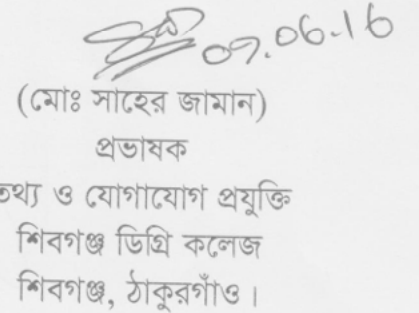 ০৭.০৬.১৬
(মোঃ সাহের জামান)
প্রভাষক
তথ্য ও যোগাযোগ প্রযুক্তি
শিবগঞ্জ ডিগ্রি কলেজ
শিবগঞ্জ, ঠাকুরগাঁও।